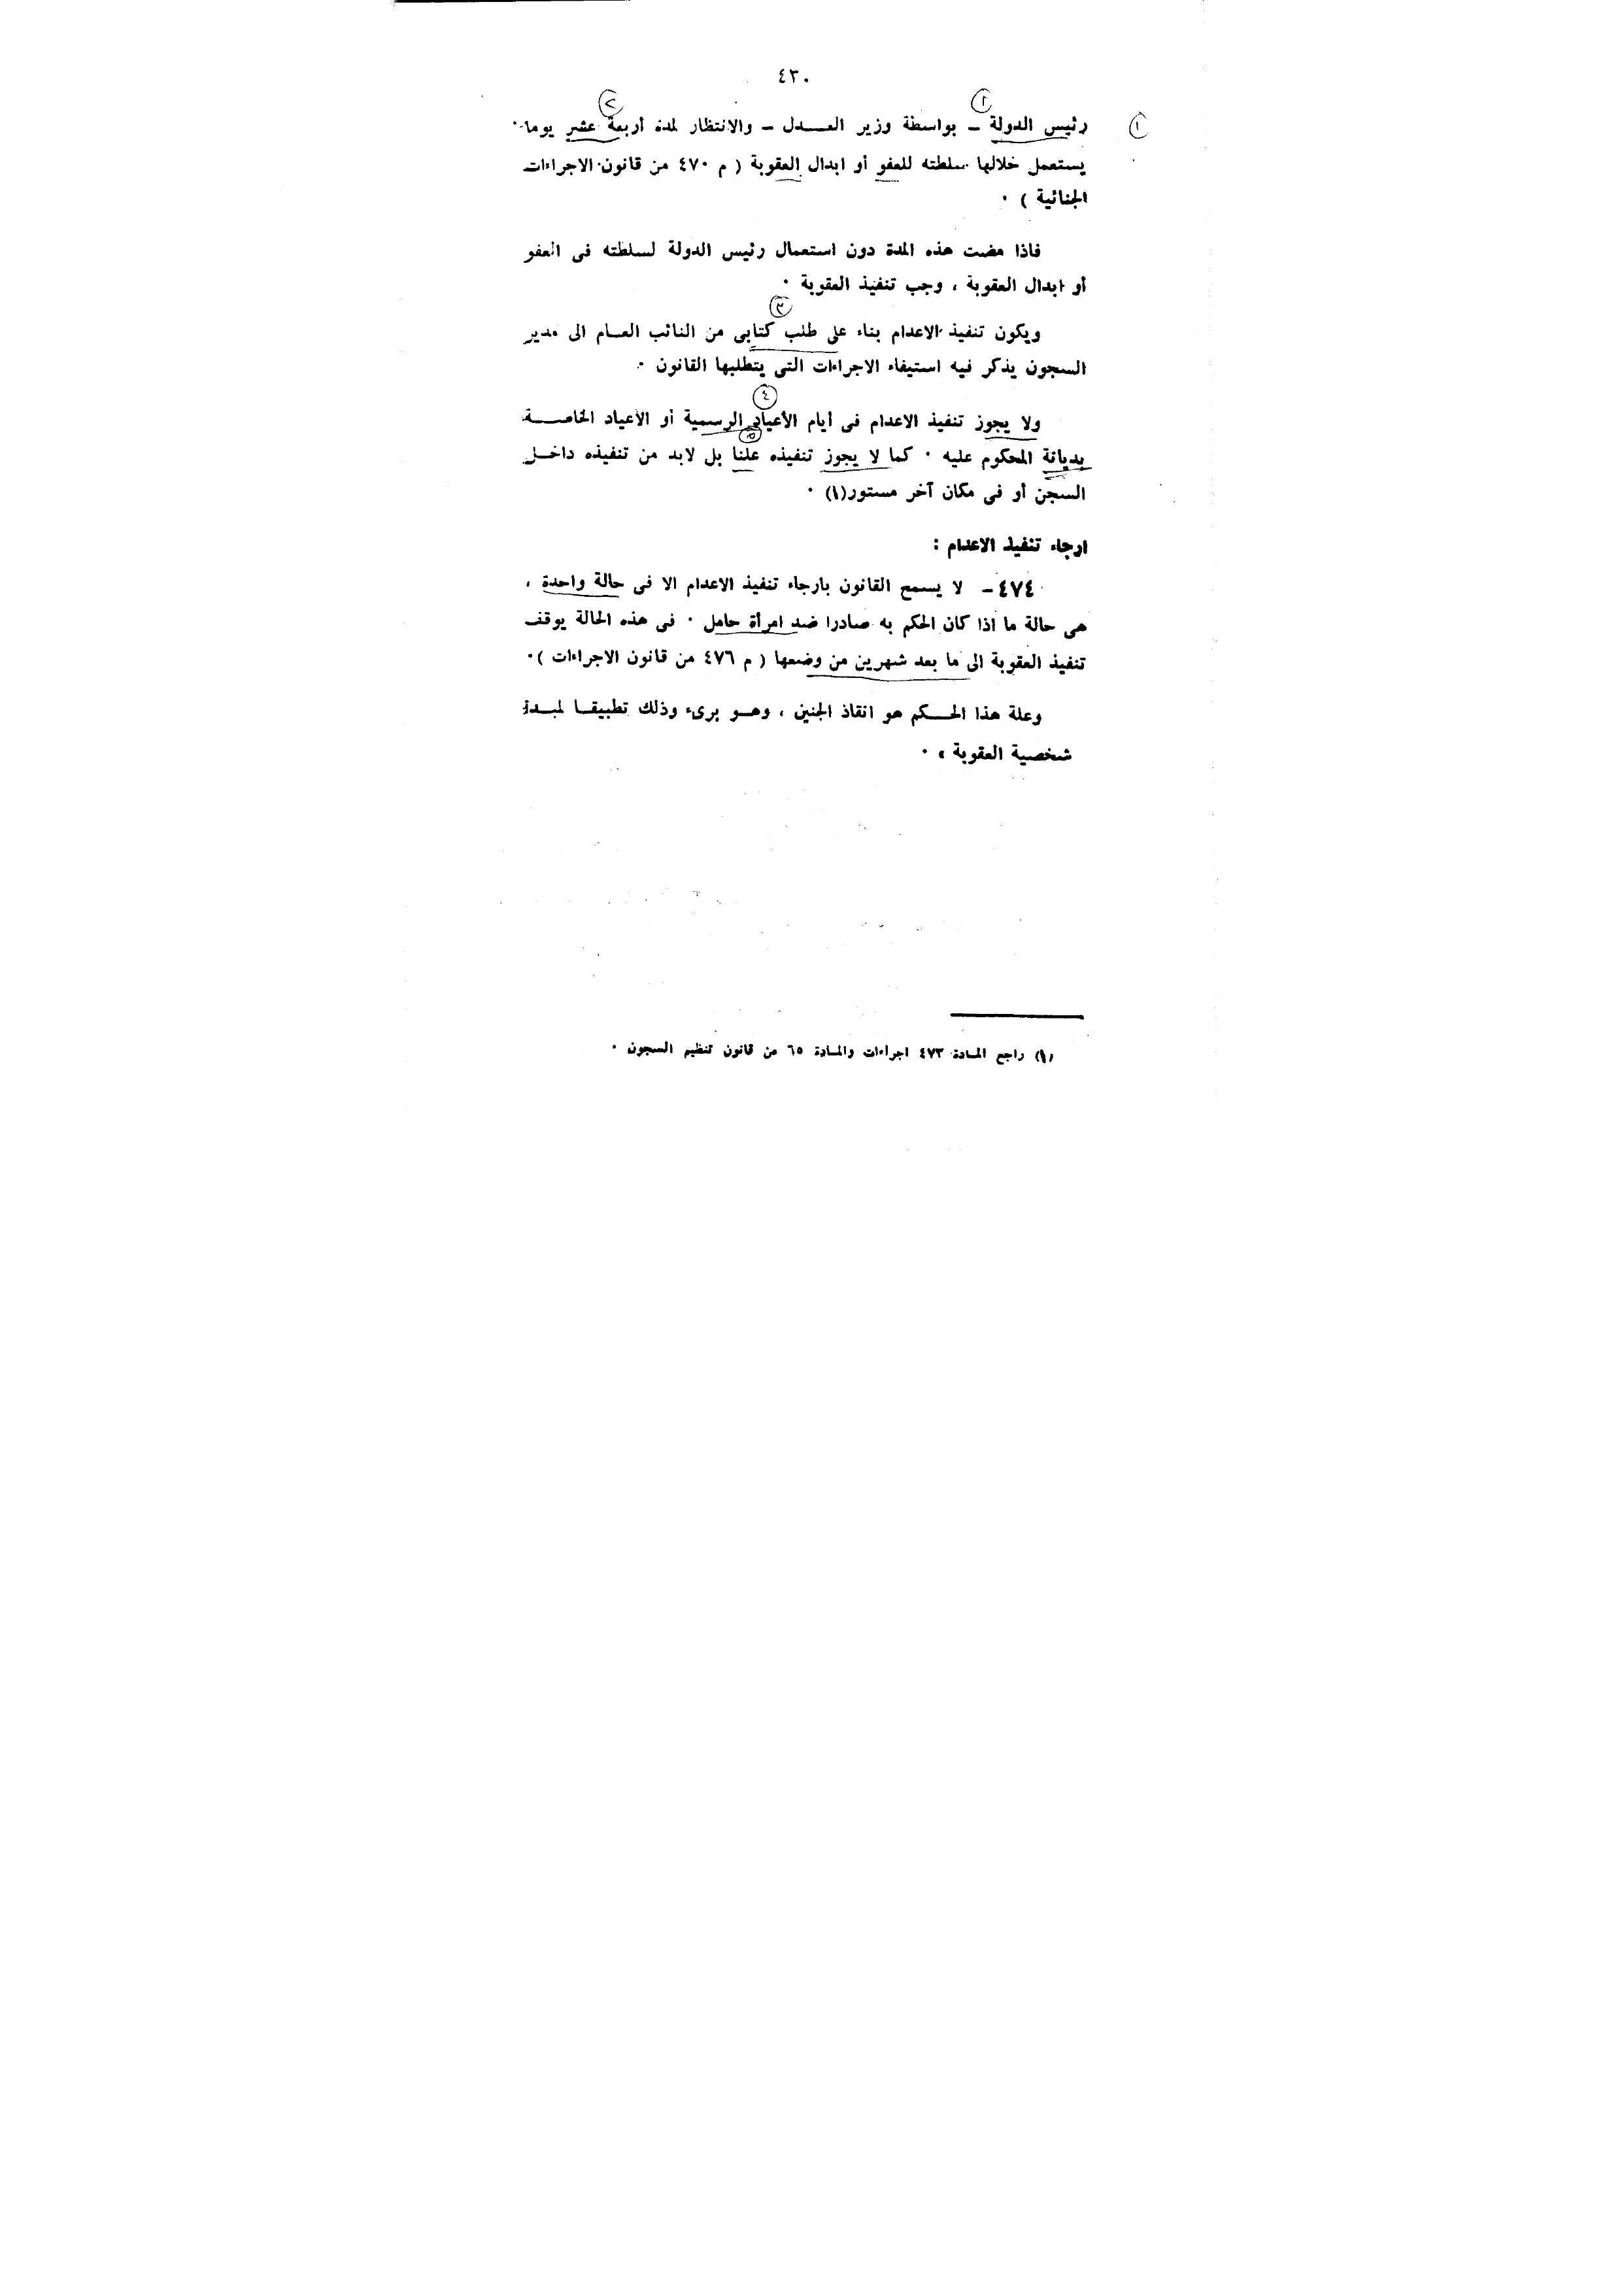 ٤٣٠
رئيس الدولة – بواسطة وزير العـــدل – والانتظار لمدة أربعة عشر يوما
يستعمل خلالها سلطته للعفو أو ابدال العقوبة ( م ٤٧٠ من قانون الاجراءات
الجنائية ) ٠
فاذا مضت هذه المدة دون استعمال رئيس الدولة لسلطته فى العفو
أو ابدال العقوبة ، وجب تنفيذ العقوبة ٠
ويكون تنفيذ الاعدام بناء على طلب كتابى من النائب العـام الى مدير
السجون يذكر فيه استيفاء الاجراءات التى يتطلبها القانون ٠
ولا يجوز تنفيذ الاعدام فى أيام الأعياد الرسمية أو الأعياد الخاصـــة
بديانة المحكوم عليه ٠ كما لا يجوز تنفيذه علنا بل لابد من تنفيذه داخـل
السجن أو فى مكان آخر مستور(١) ٠
ارجاء تنفيذ الاعدام :
٤٧٤ – لا يسمح القانون بارجاء تنفيذ الاعدام الا فى حالة واحدة ،
هى حالة ما اذا كان الحكم به صادرا ضد امرأة حامل ٠ فى هذه الحالة يوقف
تنفيذ العقوبة الى ما بعد شهرين من وضعها ( م ٤٧٦ من قانون الاجراءات )٠
وعلة هذا الحـكم هو انقاذ الجنين ، وهـو برىء وذلك تطبيقـا لمبـدأ
شخصية العقوبة ، ٠
(١) راجع المـادة ٤٧٣ اجراءات والمـادة ٦٥ من قانون تنظيم السجون ٠
١
١
٢
٣
٤
٥